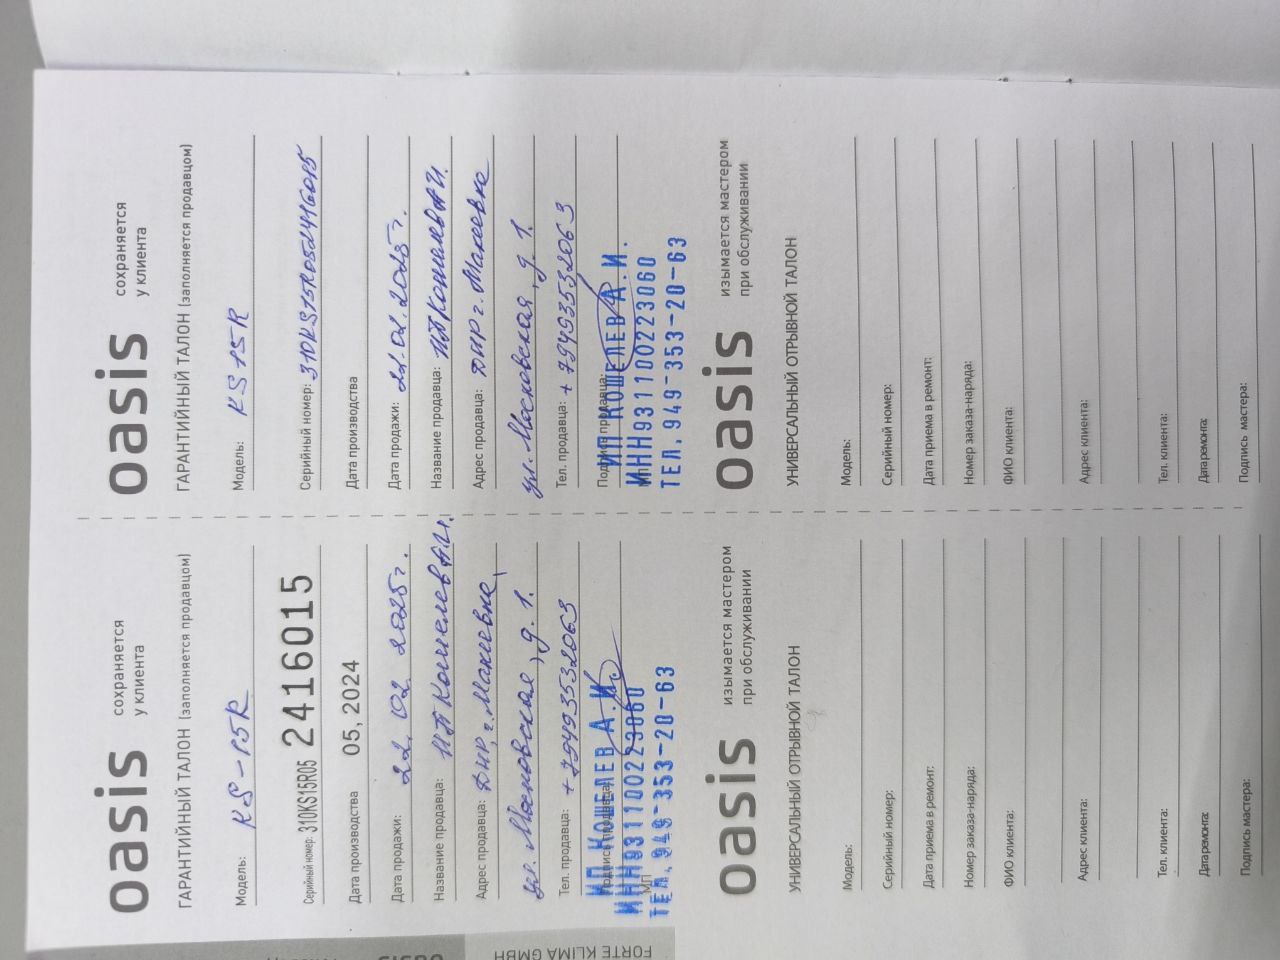 oasis
сохраняется
у клиента
ГАРАНТИЙНЫЙ ТАЛОН (заполняется продавцом)
Модель: KS-15R
Серийный номер: 310KS15R05 2416015
Дата производства 05, 2024
Дата продажи: 22.02 2025г.
Название продавца: ИП Кошелев А.И.
Адрес продавца: ДНР, г. Макеевка,
ул. Московская, д. 1.
Тел. продавца: +79493532063
Подпись продавца:
МП
ИП КОШЕЛЕВ А.И.
ИНН931100223060
ТЕЛ.949-353-20-63
oasis
сохраняется
у клиента
ГАРАНТИЙНЫЙ ТАЛОН (заполняется продавцом)
Модель: KS 15R
Серийный номер: 310KS15R052416015
Дата производства
Дата продажи: 22.02.2025г.
Название продавца: ИП Кошелев А.И.
Адрес продавца: ДНР г. Макеевка
ул. Московская, д. 1.
Тел. продавца: +79493532063
Подпись продавца:
ИП КОШЕЛЕВ А.И.
ИНН931100223060
ТЕЛ.949-353-20-63
oasis
изымается мастером
при обслуживании
УНИВЕРСАЛЬНЫЙ ОТРЫВНОЙ ТАЛОН
Модель:
Серийный номер:
Дата приема в ремонт:
Номер заказа-наряда:
ФИО клиента:
Адрес клиента:
Тел. клиента:
Дата ремонта:
Подпись мастера:
oasis
изымается мастером
при обслуживании
УНИВЕРСАЛЬНЫЙ ОТРЫВНОЙ ТАЛОН
Модель:
Серийный номер:
Дата приема в ремонт:
Номер заказа-наряда:
ФИО клиента:
Адрес клиента:
Тел. клиента:
Дата ремонта:
Подпись мастера:
oasis
FORTE KLIMA GMBH